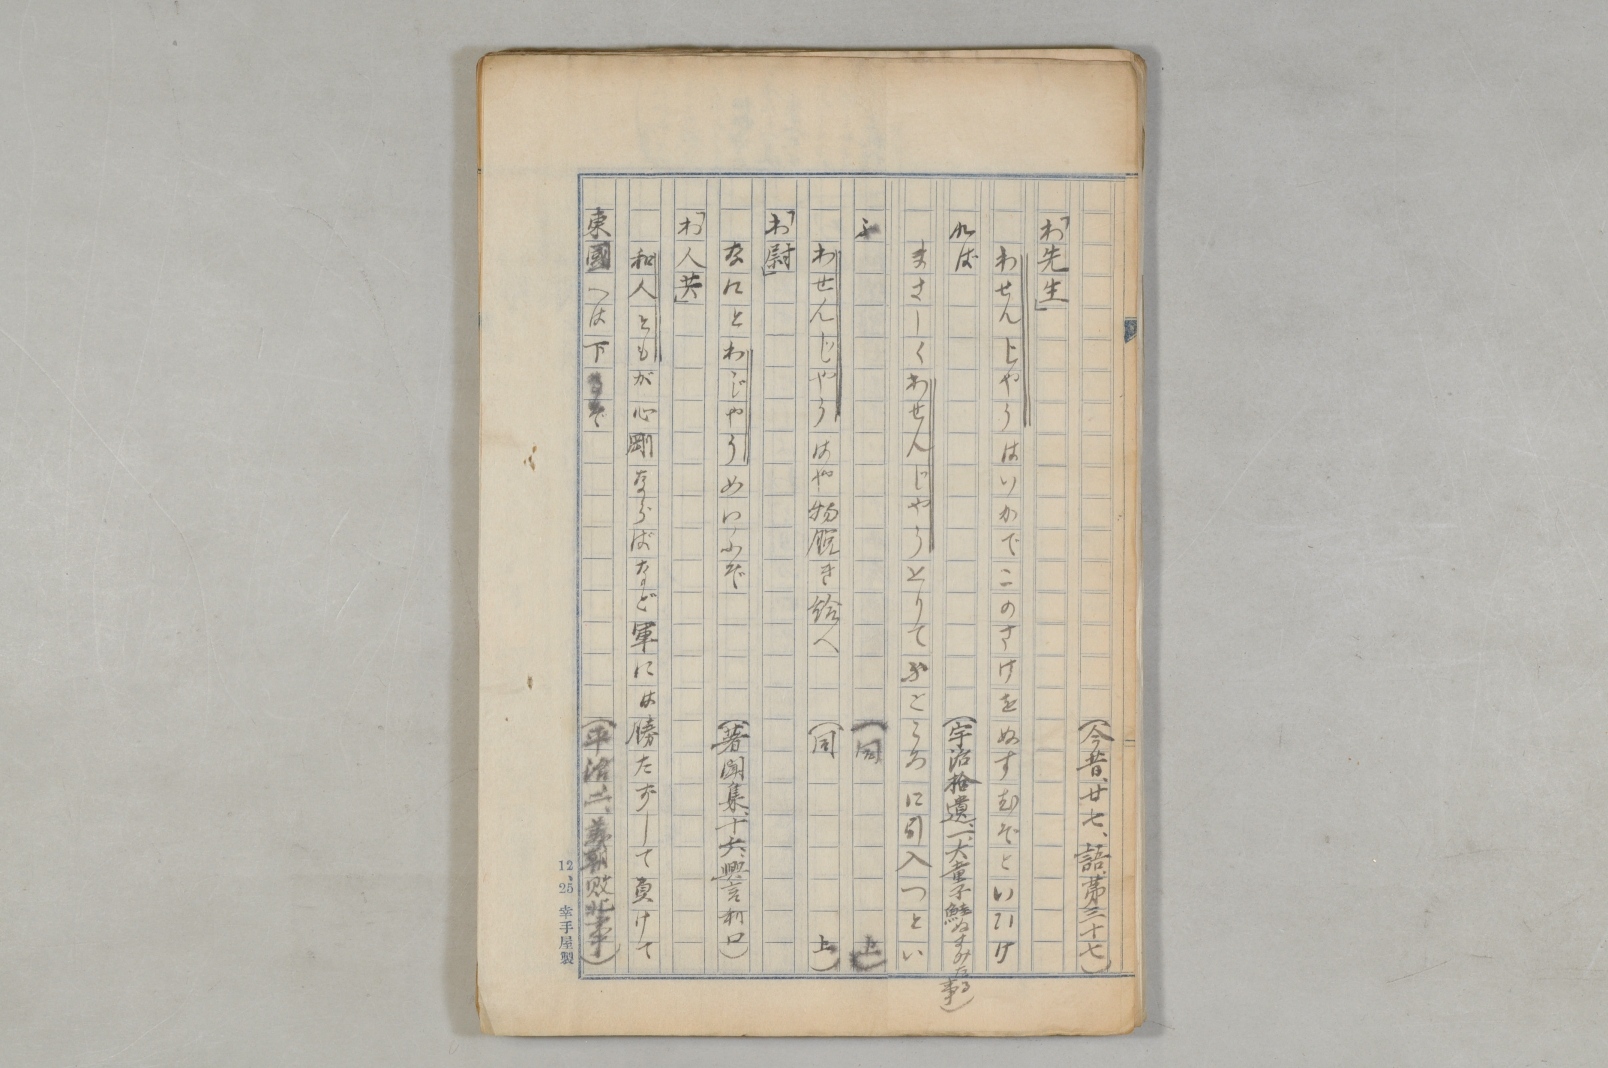 (今昔、廿七、語第三十七)
わ「先生」
わせんじやうはいかでこのさけをぬすむぞといひけ
れば
(宇治拾遺、一、大童子鮭ぬすみたる事)
まさしくわせんじやうとりてふところに引入つとい
ふ
(同 上)
わせんじやうはや物脱き給へ
(同 上)
わ「尉」
なにとわじやうめいふぞ
(著聞集、十六、興言利口)
わ「人共」
和人ともが心剛ならばなど軍には勝たずして負けて
東國へは下るぞ
(平治二、義朝敗北事)
12、25 幸手屋製